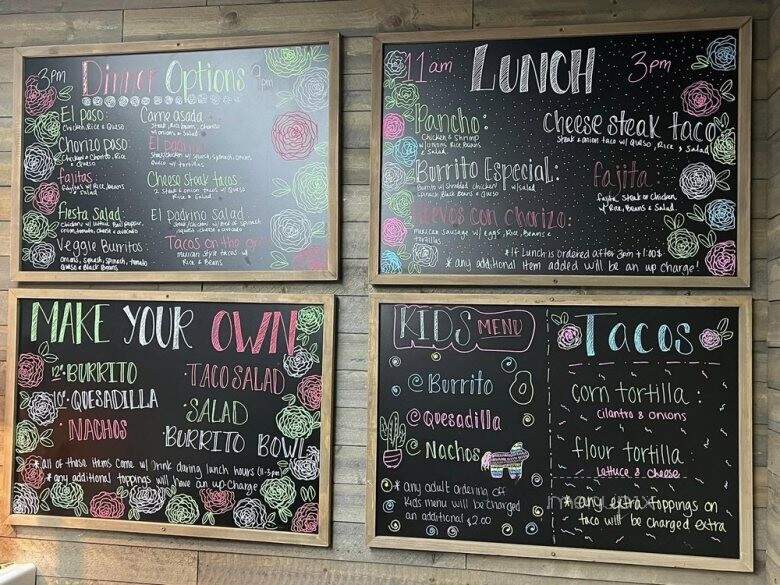 3pm Dinner Options 9pm
El paso:
Chicken, Rice & Queso
Chorizo paso:
Chicken & Chorizo, Rice
& Queso
fajitas:
fajitas w/ Rice, Beans
& Salad
Fiesta Salad:
onion, tomato, cheese & avocado
Veggie Burritos
onions, squash, spinach, tomato
Queso & Black Beans
Carne asada:
Steak, Rice, beans, chorizo
w/ onions & Salad
El padrino:
Steak/chicken w/ squash, spinach, onions,
Queso w/ tortillas
Cheese steak tacos
2 Steak & onion tacos w/ Queso
Rice & Salad
El padrino salad
squash, cheese & avocado
Tacos on the
Mexican style tacos w/
Rice & Beans
11am LUNCH 3pm
Pancho:
Chicken & Shrimp
w/ onions Rice
& Salad
Burrito Especial:
Burrito w/ Shredded chicken w/ salad
Spinach Black Beans & Queso
Huevos con chorizo:
Mexican sausage w/ eggs, Rice, Beans &
tortillas
cheese steak taco
Steak & onion taco w/ Queso, Rice & Salad
fajita:
fajita, Steak or Chicken
w/ Rice, Beans & Salad
*If Lunch is ordered after 3pm + 1.00$
*any additional item added will be an up charge!
MAKE YOUR OWN
12" BURRITO
10" QUESADILLA
• NACHOS
• TACO SALAD
• SALAD
• BURRITO BOWL
*all of these items come w/ Drink during lunch hours (11-3pm)
*any additional toppings will have an up charge
KIDS MENU
Burrito
Quesadilla
Nachos
*any adult ordering off
Kids menu will be charged
an additional $2.00
Tacos
corn tortilla:
cilantro & onions
flour tortilla:
Lettuce & cheese
*any extra toppings on
taco will be charged extra